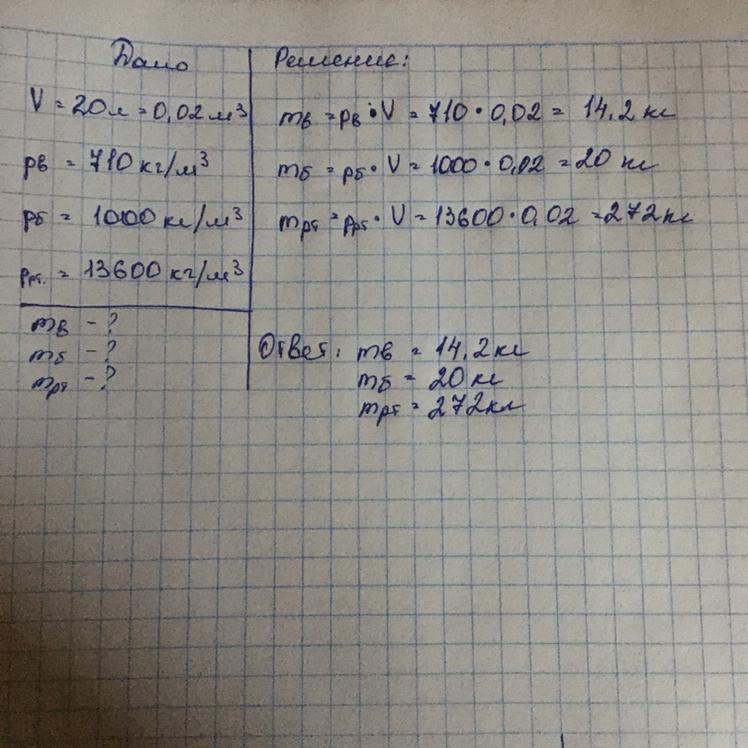 Дано
V = 20л = 0,02 м³
pв = 710 кг/м³
pб = 1000 кг/м³
pрт. = 13600 кг/м³
mв - ?
mб - ?
mрт - ?
Решение:
mв = pв • V = 710 • 0,02 = 14.2 кг
mб = pб • V = 1000 • 0,02 = 20 кг
mрт = pрт • V = 13600 • 0,02 = 272 кг
Ответ: mв = 14.2 кг
mб = 20 кг
mрт = 272 кг